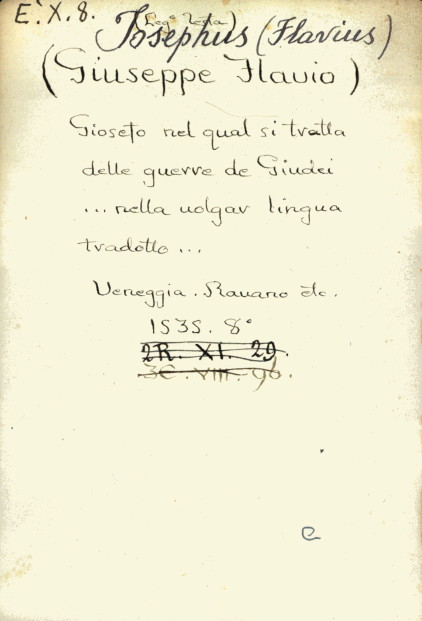 E. X. 8. (Leg. Testa)
Josephus (Flavius)
(Giuseppe Flavio)
Giosefo nel qual si tratta
delle guerre de Giudei
... nella uolgar lingua
tradotto ...
Ueneggia. Rauano etc.
1535. 8°
2R. XI. 29.
3C. VIII. 96.
e